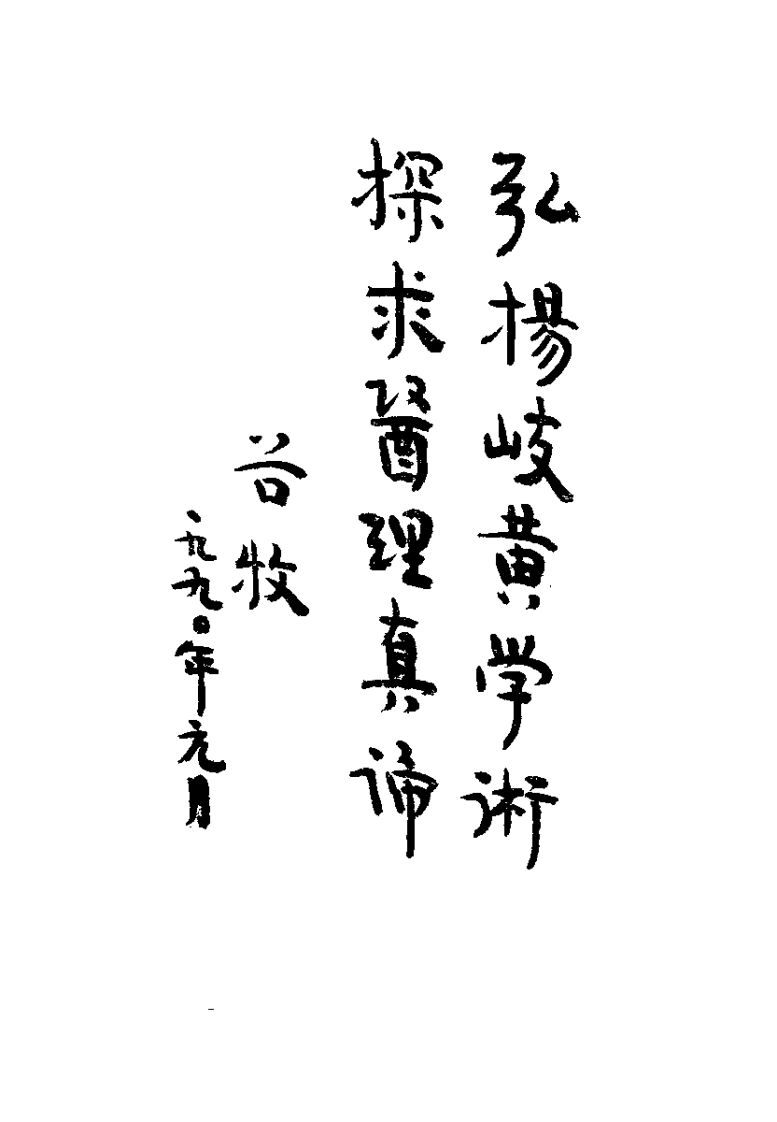 弘揚岐黄学術
探求醫理真諦
谷牧
一九九〇年元月